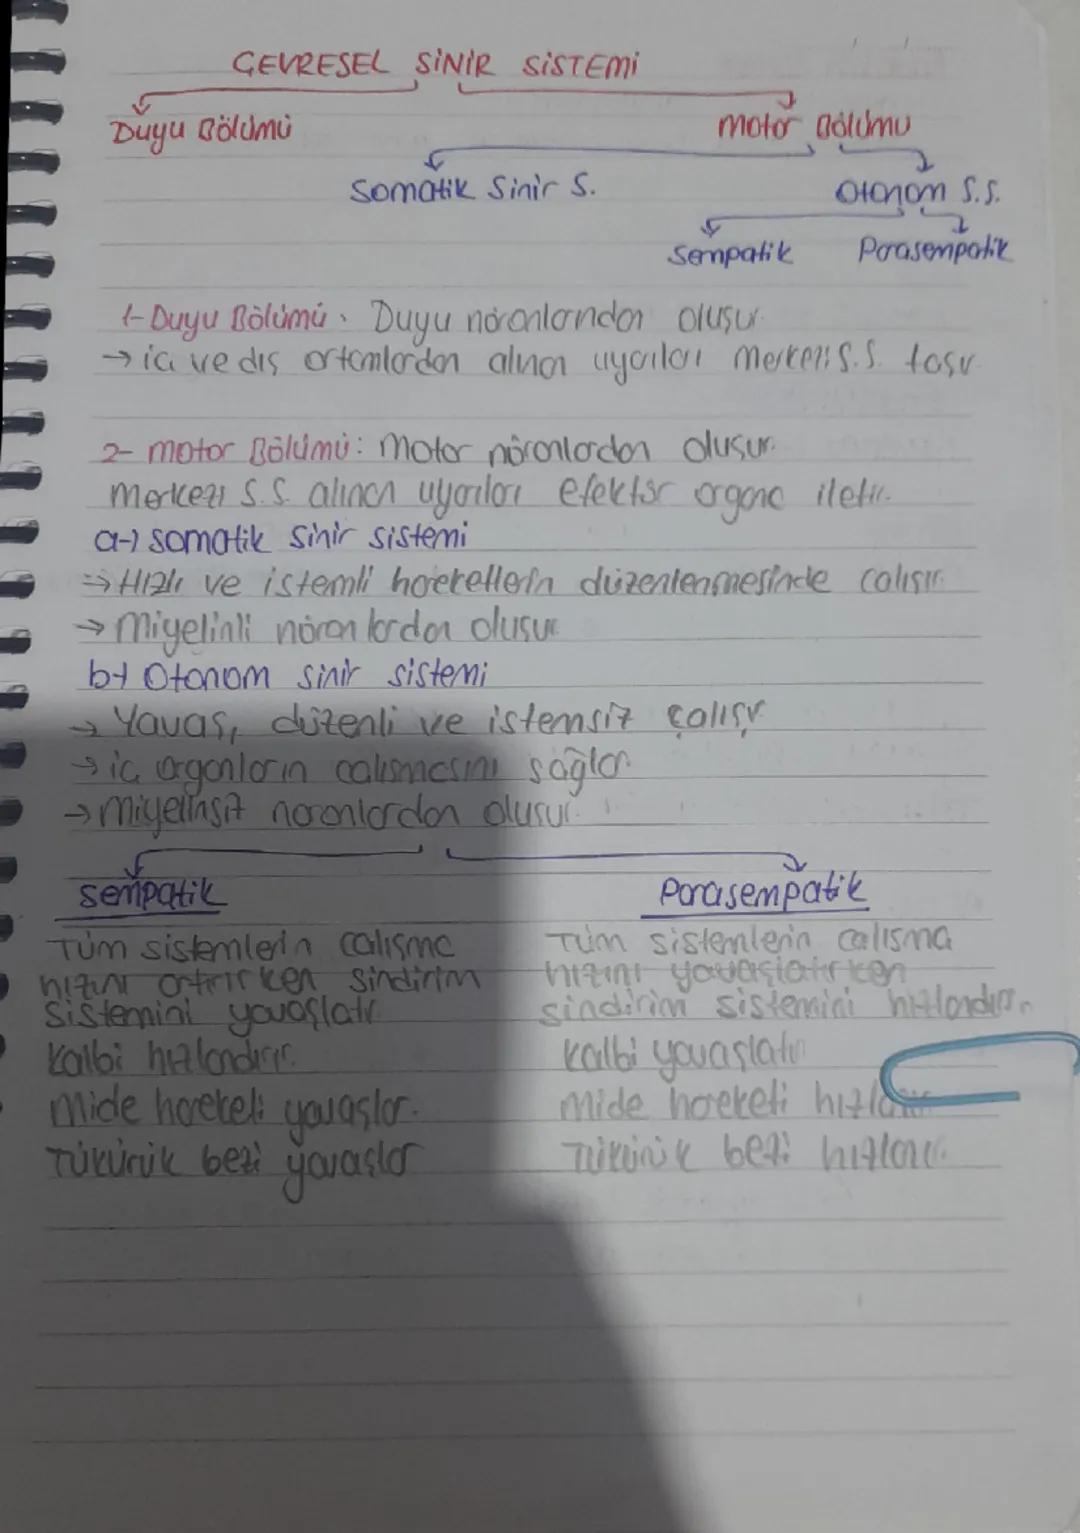 ÇEVRESEL SİNİR SİSTEMİ
Duyu Bölümü
Motor Bölümü
Somatik Sinir S.
Otonom S.S.
Sempatik
Parasempatik
1- Duyu Bölümü: Duyu nöronlarından oluşur.
→ iç ve dış ortamlardan alınan uyarıları merkezi S.S. taşır
2- Motor Bölümü: Motor nöronlardan oluşur.
Merkezi S.S. alınan uyarıları efektör organa iletir.
a-) Somatik Sinir Sistemi
→ Hızlı ve istemli hareketlerin düzenlenmesinde çalışır.
→ Miyelinli nöronlardan oluşur
b-) Otonom Sinir Sistemi
→ Yavaş, düzenli ve istemsiz çalışır
→ iç organların çalışmasını sağlar
→ Miyelinsiz nöronlardan oluşur.
Sempatik
Parasempatik
Tüm sistemlerin çalışma
hızını artırırken Sindirim
Sistemini yavaşlatır
Kalbi hızlandırır.
Mide hareketi yavaşlar.
Tükürük bezi yavaşlar
Tüm sistemlerin çalışma
hızını yavaşlatırken
sindirim sistemini hızlandırır.
Kalbi yavaşlatır
Mide hareketi hızlanır
Tükürük bezi hızlanır.